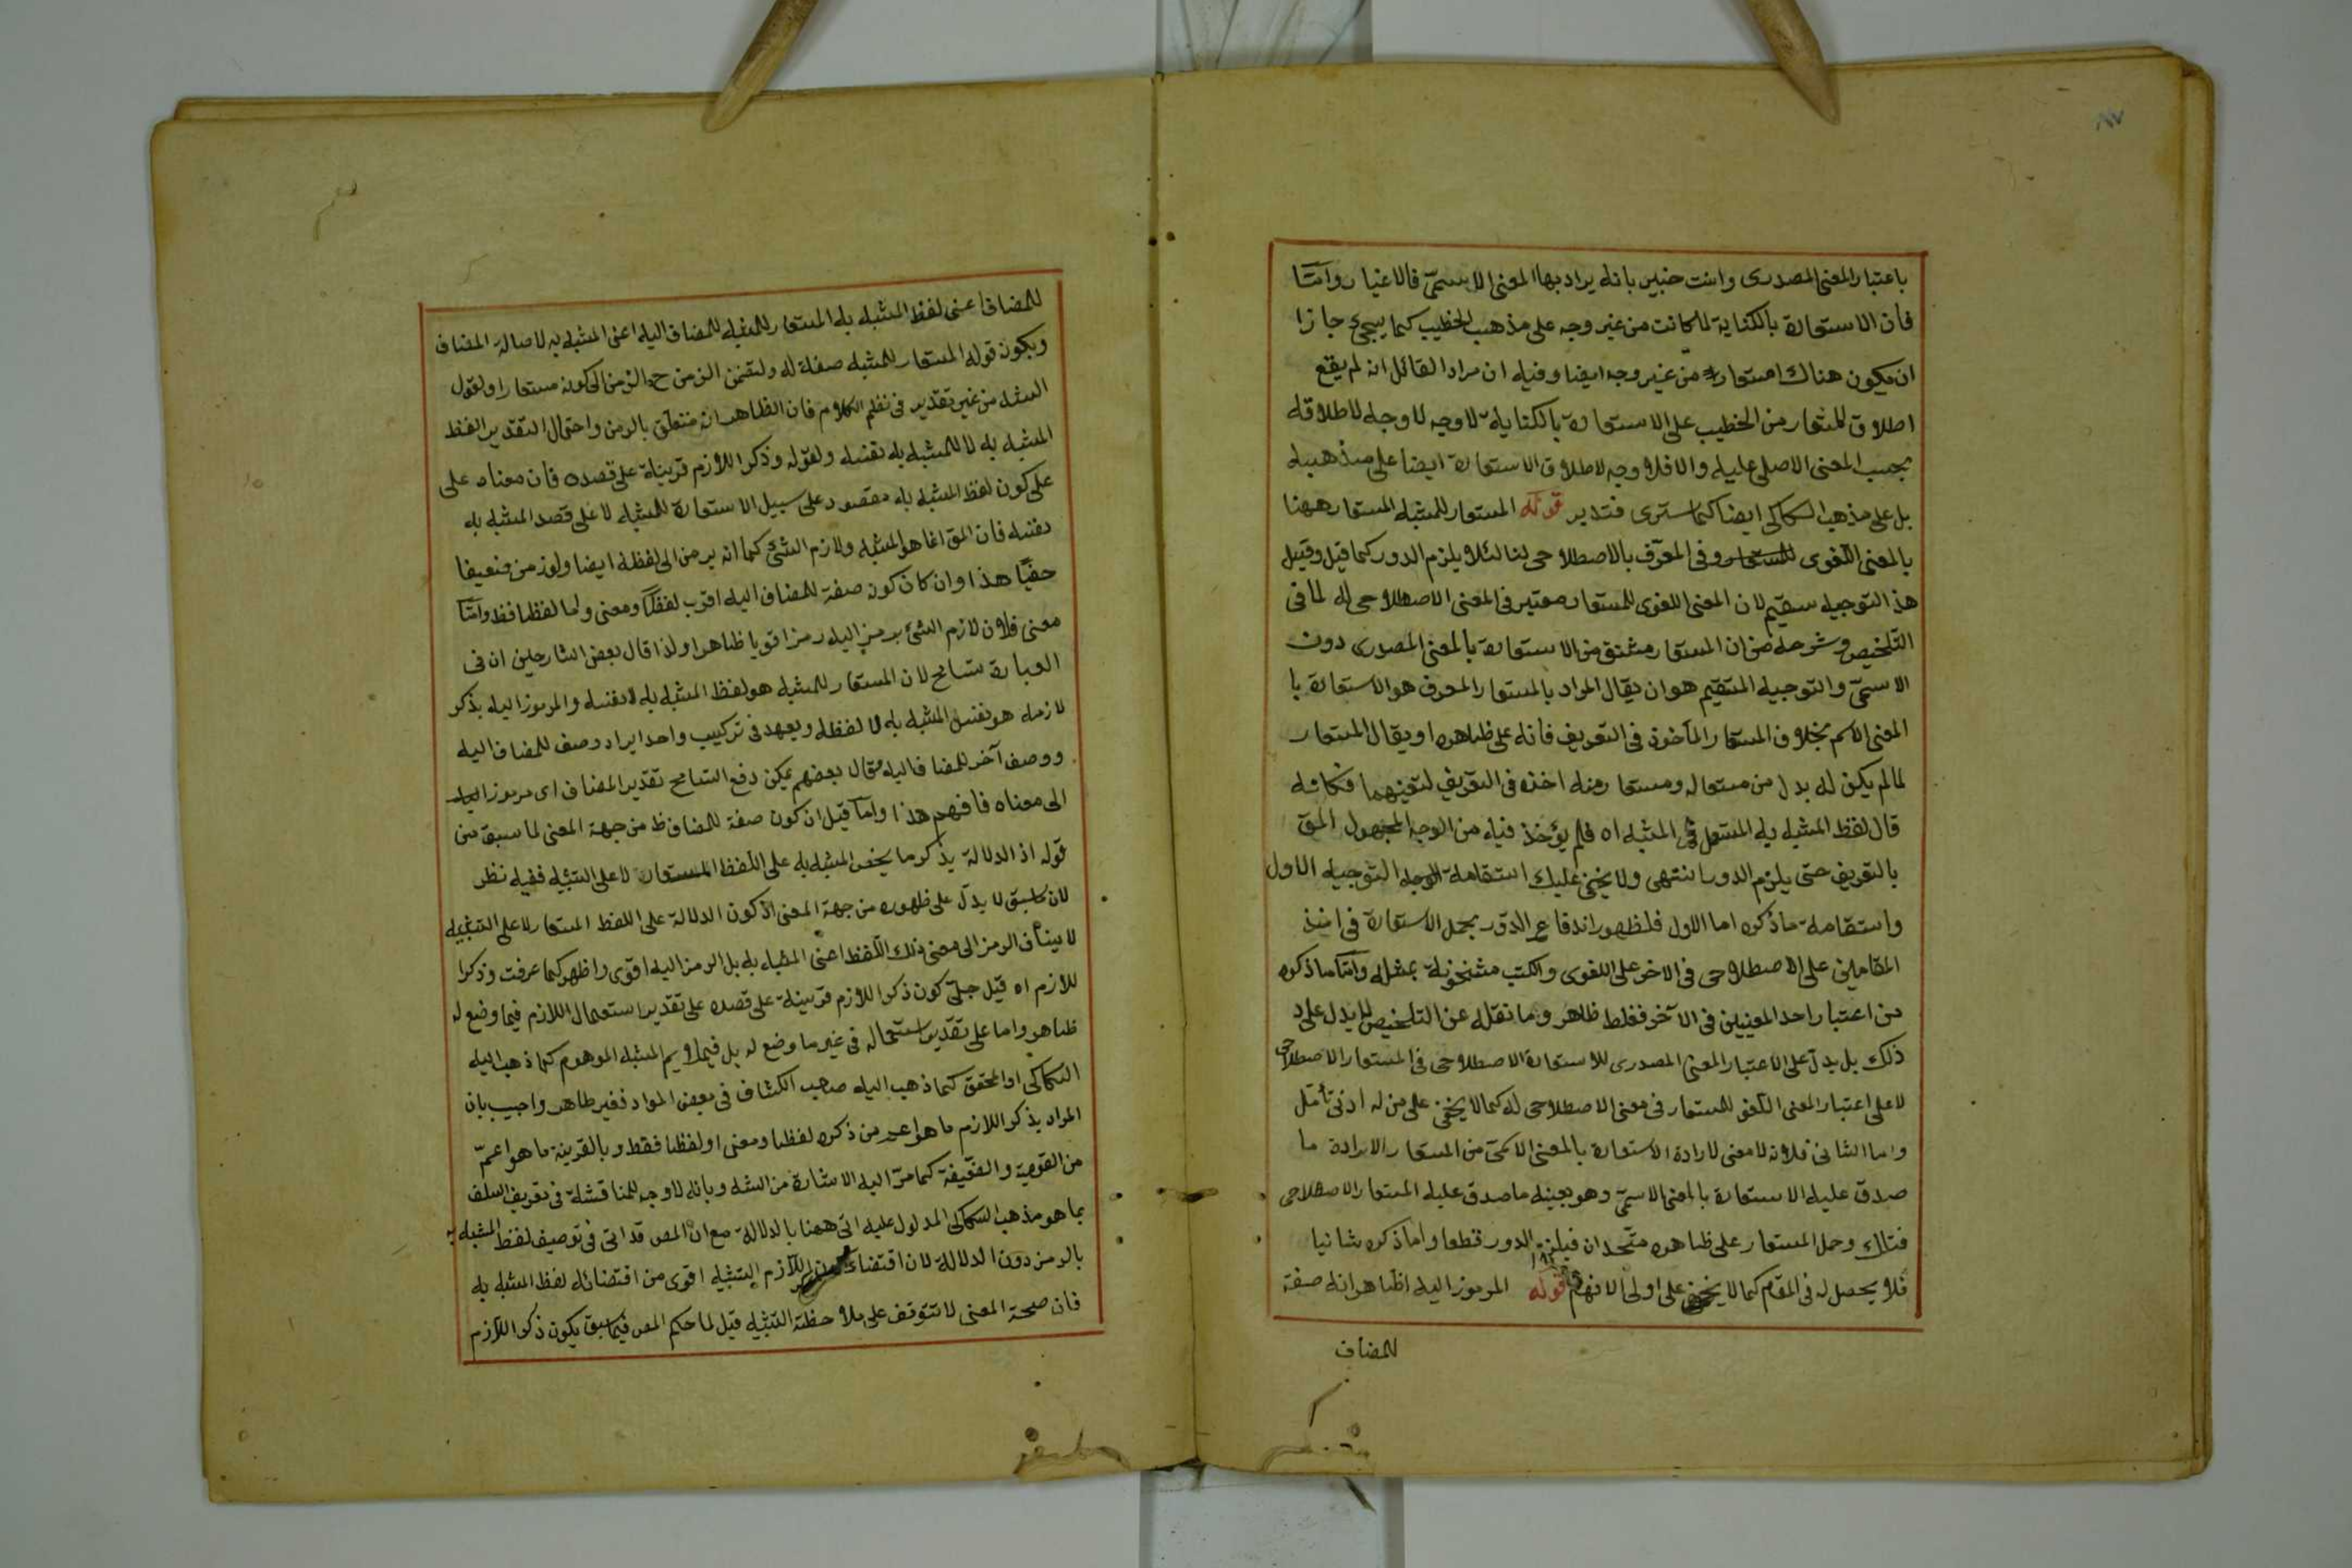 باعتبار المعنى المصدرى وانت خبير بانه يراد بها المعنى الاسمىّ فالاغيار وامّا
فان الاستعارة بالكناية لما كانت من غير وجه على مذهب الخطيب كما يجئ جازا
ان يكون هناك استعارة من غير وجه ايضا وفيه ان مراد القائل انه لم يقع
اطلاق المستعار من الخطيب على الاستعارة بالكناية لا وجه لا وجه لاطلاقه
بحسب المعنى الاصلى عليه والا فلا وجه لاطلاق الاستعارة ايضا على مذهبه
بل على مذهب السكاكى ايضا كما سترى فتدبر قوله المستعار للمشبه المستعار ههنا
بالمعنى اللغوى وفى المعرّف بالاصطلاحى لنا لئلا يلزم الدور كما قيل وقيل
هذا التوجيه سقيم لان المعنى اللغوى للمستعار معتبر فى المعنى الاصطلاحى له لما فى
التلخيص وشرحه من ان المستعار مشتق من الاستعارة بالمعنى المصدرى دون
الاسمىّ والتوجيه المستقيم هو ان يقال المراد بالمستعار المعرف هو الاستعارة با
المعنى الاسم بخلاف المستعار المأخوذ فى التعريف فانه على ظاهره او يقال المستعار
لما لم يكن له بدل من مستعار له ومستعار منه اخذه فى التعريف لتعيّنهما فكانه
قال لفظ المشبه به المستعمل فى المشبه اه فلم يؤخذ فيه من الوجه المجهول المق
بالتعريف حتى يلزم الدور انتهى ولا يخفى عليك استقامة التوجيه الاول
واستقامة ما ذكره اما الاول فلظهور اندفاع الدور بحمل الاستعارة فى
المقاملين على الاصطلاحى فى الاخر على اللغوى والكتب مشحونة بمثله وامّا ما ذكره
من اعتبار احد المعنيين فى الآخر فغلط ظاهر وما نقله عن التلخيص لا يدل على
ذلك بل يدلّ على الاعتبار المعنى المصدرى للاستعارة الاصطلاحى فى المستعار الاصطلاحى
لا على اعتبار المعنى اللغوى للمستعار فى معنى الاصطلاحى له كما لا يخفى على من له ادنى تأمّل
واما الثانى فلانه لا معنى لارادة الاستعارة بالمعنى الاسمىّ من المستعار الا ارادة ما
صدق عليه الاستعارة بالمعنى الاسمىّ وهو بعينه ما صدق عليه المستعار الاصطلاحى
فتلك وحمل المستعار على ظاهره متّحدان فيلزم الدور قطعا واما ذكره ثانيا
فلا يحصل له فى المقام كما لا يخفى على اولى الافهام قوله المرموز اليه الظاهر انه صفة
للمضاف
للمضاف اعنى لفظ المشبه به المستعار للمشبه للمضاف اليه اعنى المشبه به لاصالة المضاف
ويكون قوله المستعار للمشبه صفة له ولتضمن الرمز ح الرمز الى كونه مستعارا ولقول
من غير تقدير فى نظم الكلام فان الظاهر انه متعلق بالرمز واحتمال التقدير الفظ
المشبه به لا للمشبه به نفسه ولقوله وذكر اللازم قرينة على قصده فان معناه على
على كون لفظ المشبه به مقصود على سبيل الاستعارة للمشبه لا على قصد المشبه به
نفسه فان المق انما هو المشبه ولازم الشئ كما انه يرمز الى لفظه ايضا ولو رمز ضعيفا
خفيّا هذا وان كان كونه صفة للمضاف اليه اقرب لفظًا ومعنى ولما لفظا فظ وامّا
معنى فلان لازم الشئ يرمز اليه رمزا قويا ظاهرا ولذا قال بعض الشارحين ان فى
العبارة تسامح لان المستعار للمشبه هو لفظ المشبه به لا نفسه والمرموز اليه بذكر
لازمه هو نفس المشبه به لا لفظه ويعهد فى تركيب واحد ايراد وصف للمضاف اليه
ووصف آخر للمضاف اليه فقال بعضهم يمكن دفع التسامح تقدير المضاف اى مرموز اليه
الى معناه فافهم هذا وامّا قيل ان كون صفة للمضاف ظ من جهة المعنى لما سبق من
قوله اذ الدلالة يذكر ما يخص المشبه به على اللفظ المستعار لا على التشبيه ففيه نظر
لان ما سبق لا يدلّ على ظهوره من جهة المعنى اذ كون الدلالة على اللفظ المستعار لا على التشبيه
لا ينافى الرمز الى معنى ذلك اللّفظ اعنى المشبه به بل الرمز اليه اقوى واظهر كما عرفت وذكرا
للازم اه قيل جلىّ كون ذكر اللازم قرينة على قصده على تقدير استعمال اللازم فيما وضع له
ظاهر واما على تقدير استعماله فى غير ما وضع له بل فيما يلايم المشبه الموهوم كما ذهب اليه
السكاكى او المحقق كما ذهب اليه صاحب الكشاف فى بعض المواد فغير ظاهر واجيب بان
المراد بذكر اللازم ما هو اعم من ذكره لفظا ومعنى او لفظا فقط وبالقرينة ما هو اعمّ
من القوية والضعيفة كما مرّ اليه الاشارة من الشه وبانه لا وجه للمناقشة فى تعريف السلف
بما هو مذهب السكاكى المدلول عليه اتى ههنا بالدلالة مع ان المص قد اتى فى توصيف لفظ المشبه به
بالرمز دون الدلالة لان اقتضاء اللازم التشبيه اقوى من اقتضائه لفظ المشبه به
فان صحة المعنى لا تتوقف على ملاحظة التشبيه قيل لما حكم المص فيما سبق بكون ذكر اللازم